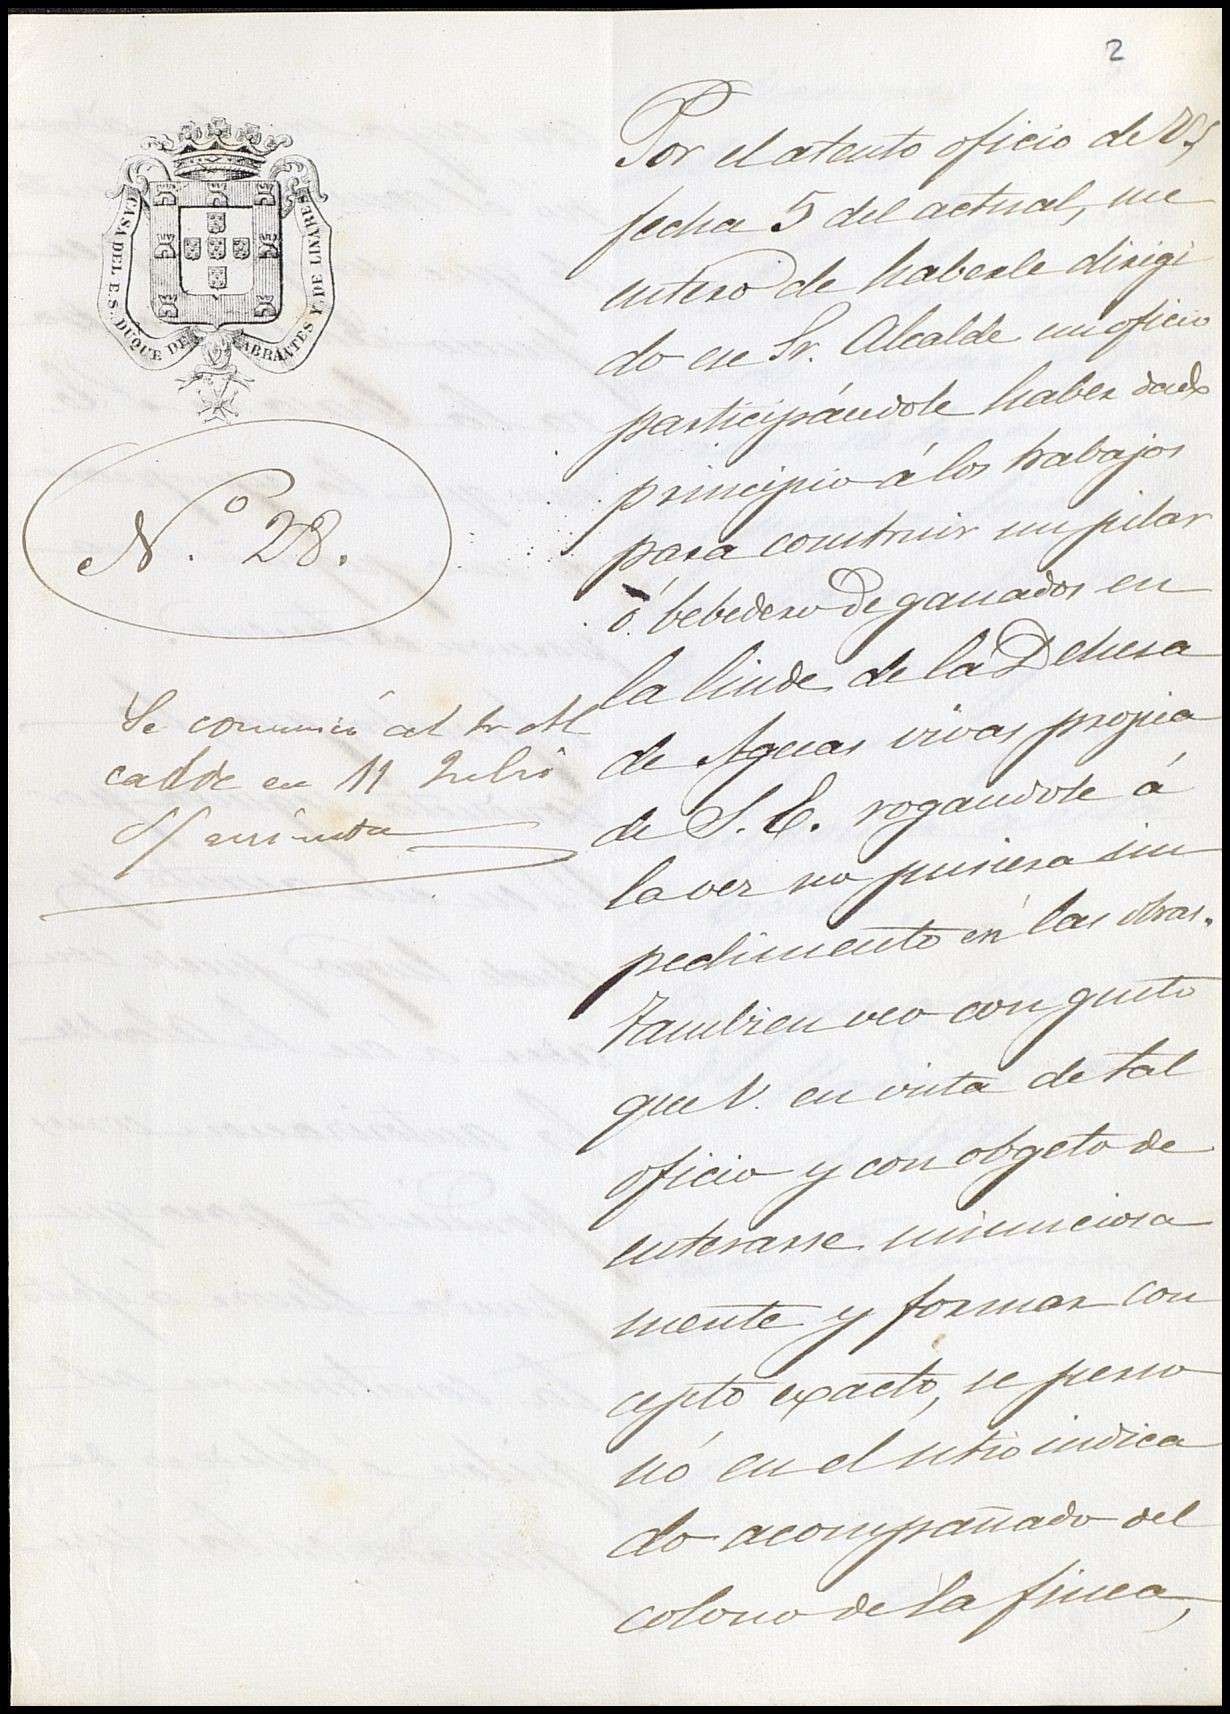 2
CASA DEL E. S. DUQUE DE ABRANTES Y DE LINARES
N.º 28.
Se comunicó al Sr Al
calde en 11 Julio
Por el atento oficio de V.,
fecha 5 del actual, me
entero de haberle dirigi
do ese Sr. Alcalde un oficio
participándole haber dado
principio á los trabajos
para construir un pilar
ó bebedero de ganados en
la linde de la Dehesa
de Aguas vivas propia
de S. E. rogandole á
la vez no pusiera im
pedimento en las obras.
Tambien veo con gusto
que V. en vista de tal
oficio y con obgeto de
enterarse minuciosa
mente y formar con
cepto exacto, se perso
nó en el sitio indica
do acompañado del
colono de la finca,